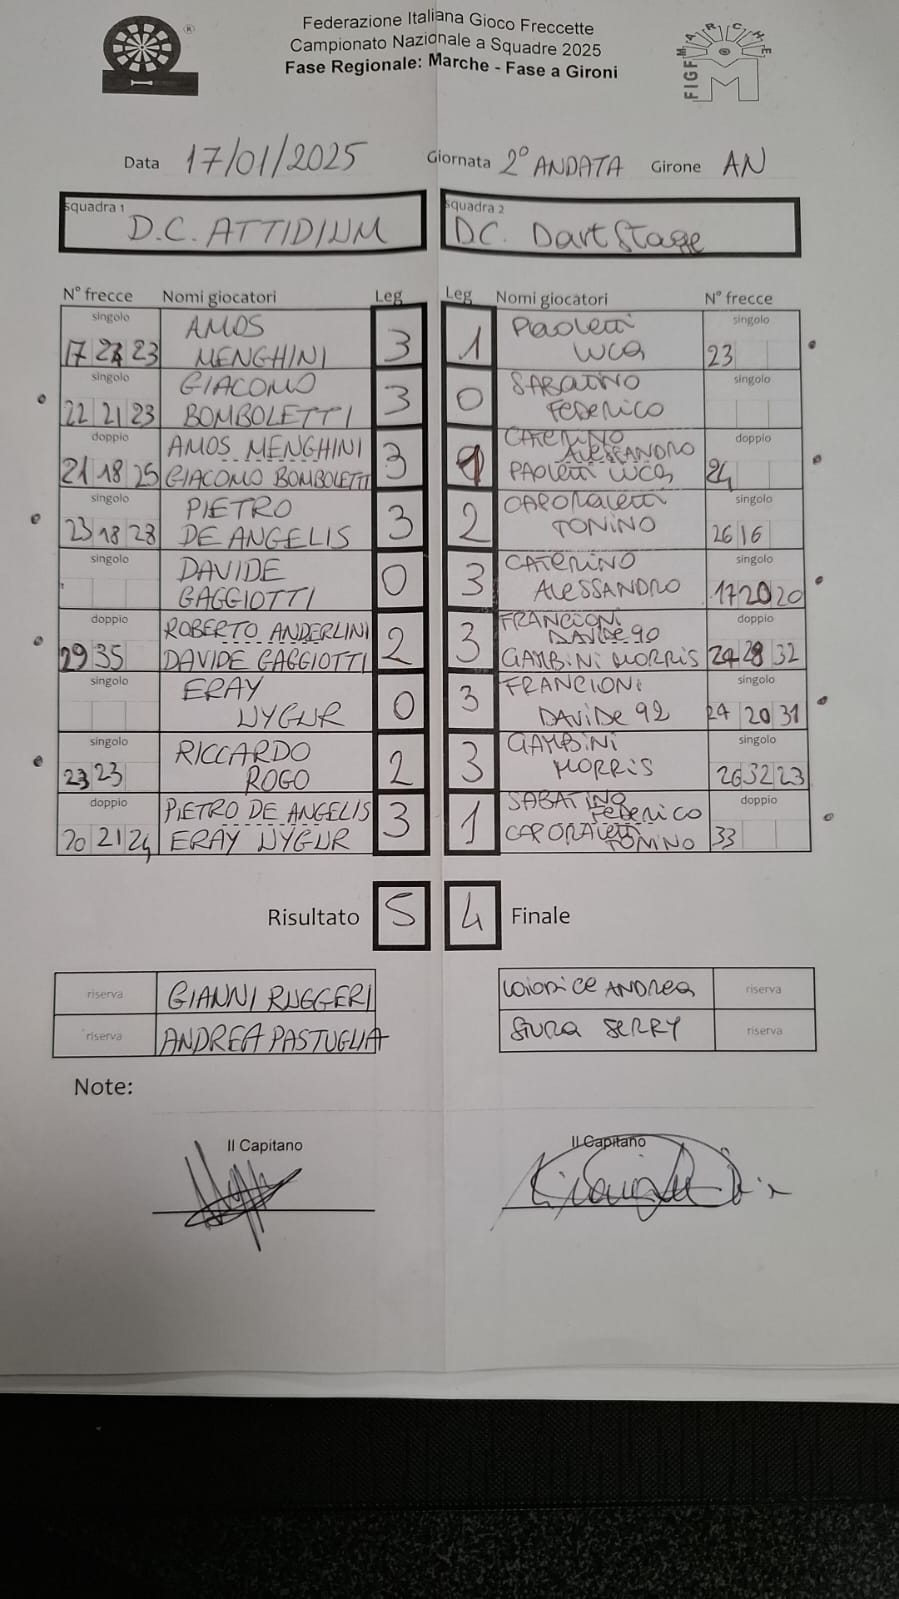 Federazione Italiana Gioco Freccette
Campionato Nazionale a Squadre 2025
Fase Regionale: Marche - Fase a Gironi
FIGF MARCHE
M
Data 17/01/2025 Giornata 2° ANDATA Girone AN
Squadra 1 D.C. ATTIDIUM
Squadra 2 D.C. DartStage
N° frecce Nomi giocatori Leg Leg Nomi giocatori N° frecce
singolo AMOS Paoletti singolo
17 23 MENGHINI 3 1 LUCA 23
singolo GIACOMO SABATINO singolo
22 21 23 BOMBOLETTI 3 0 Federico
doppio AMOS MENGHINI CATERINO ALESSANDRO doppio
21 18 25 GIACOMO BOMBOLETTI 3 1 PAOLETTI LUCA 24
singolo PIETRO CAPORALETTI singolo
23 18 28 DE ANGELIS 3 2 TONINO 26 16
singolo DAVIDE CATERINO singolo
GAGGIOTTI 0 3 ALESSANDRO 17 20 20
doppio ROBERTO ANDERLINI FRANCIONI DAVIDE 90 doppio
29 35 DAVIDE GAGGIOTTI 2 3 GAMBINI MORRIS 24 28 32
singolo ERAY FRANCIONI singolo
UYGUR 0 3 DAVIDE 92 24 20 31
singolo RICCARDO GAMBINI singolo
23 23 ROGO 2 3 MORRIS 26 32 23
doppio PIETRO DE ANGELIS SABATINO Federico doppio
20 21 24 ERAY UYGUR 3 1 CAPORALETTI TONINO 33
Risultato 5 4 Finale
riserva GIANNI RUGGERI LOIODICE ANDREA riserva
riserva ANDREA PASTUGLIA SERRY riserva
Note:
Il Capitano Il Capitano